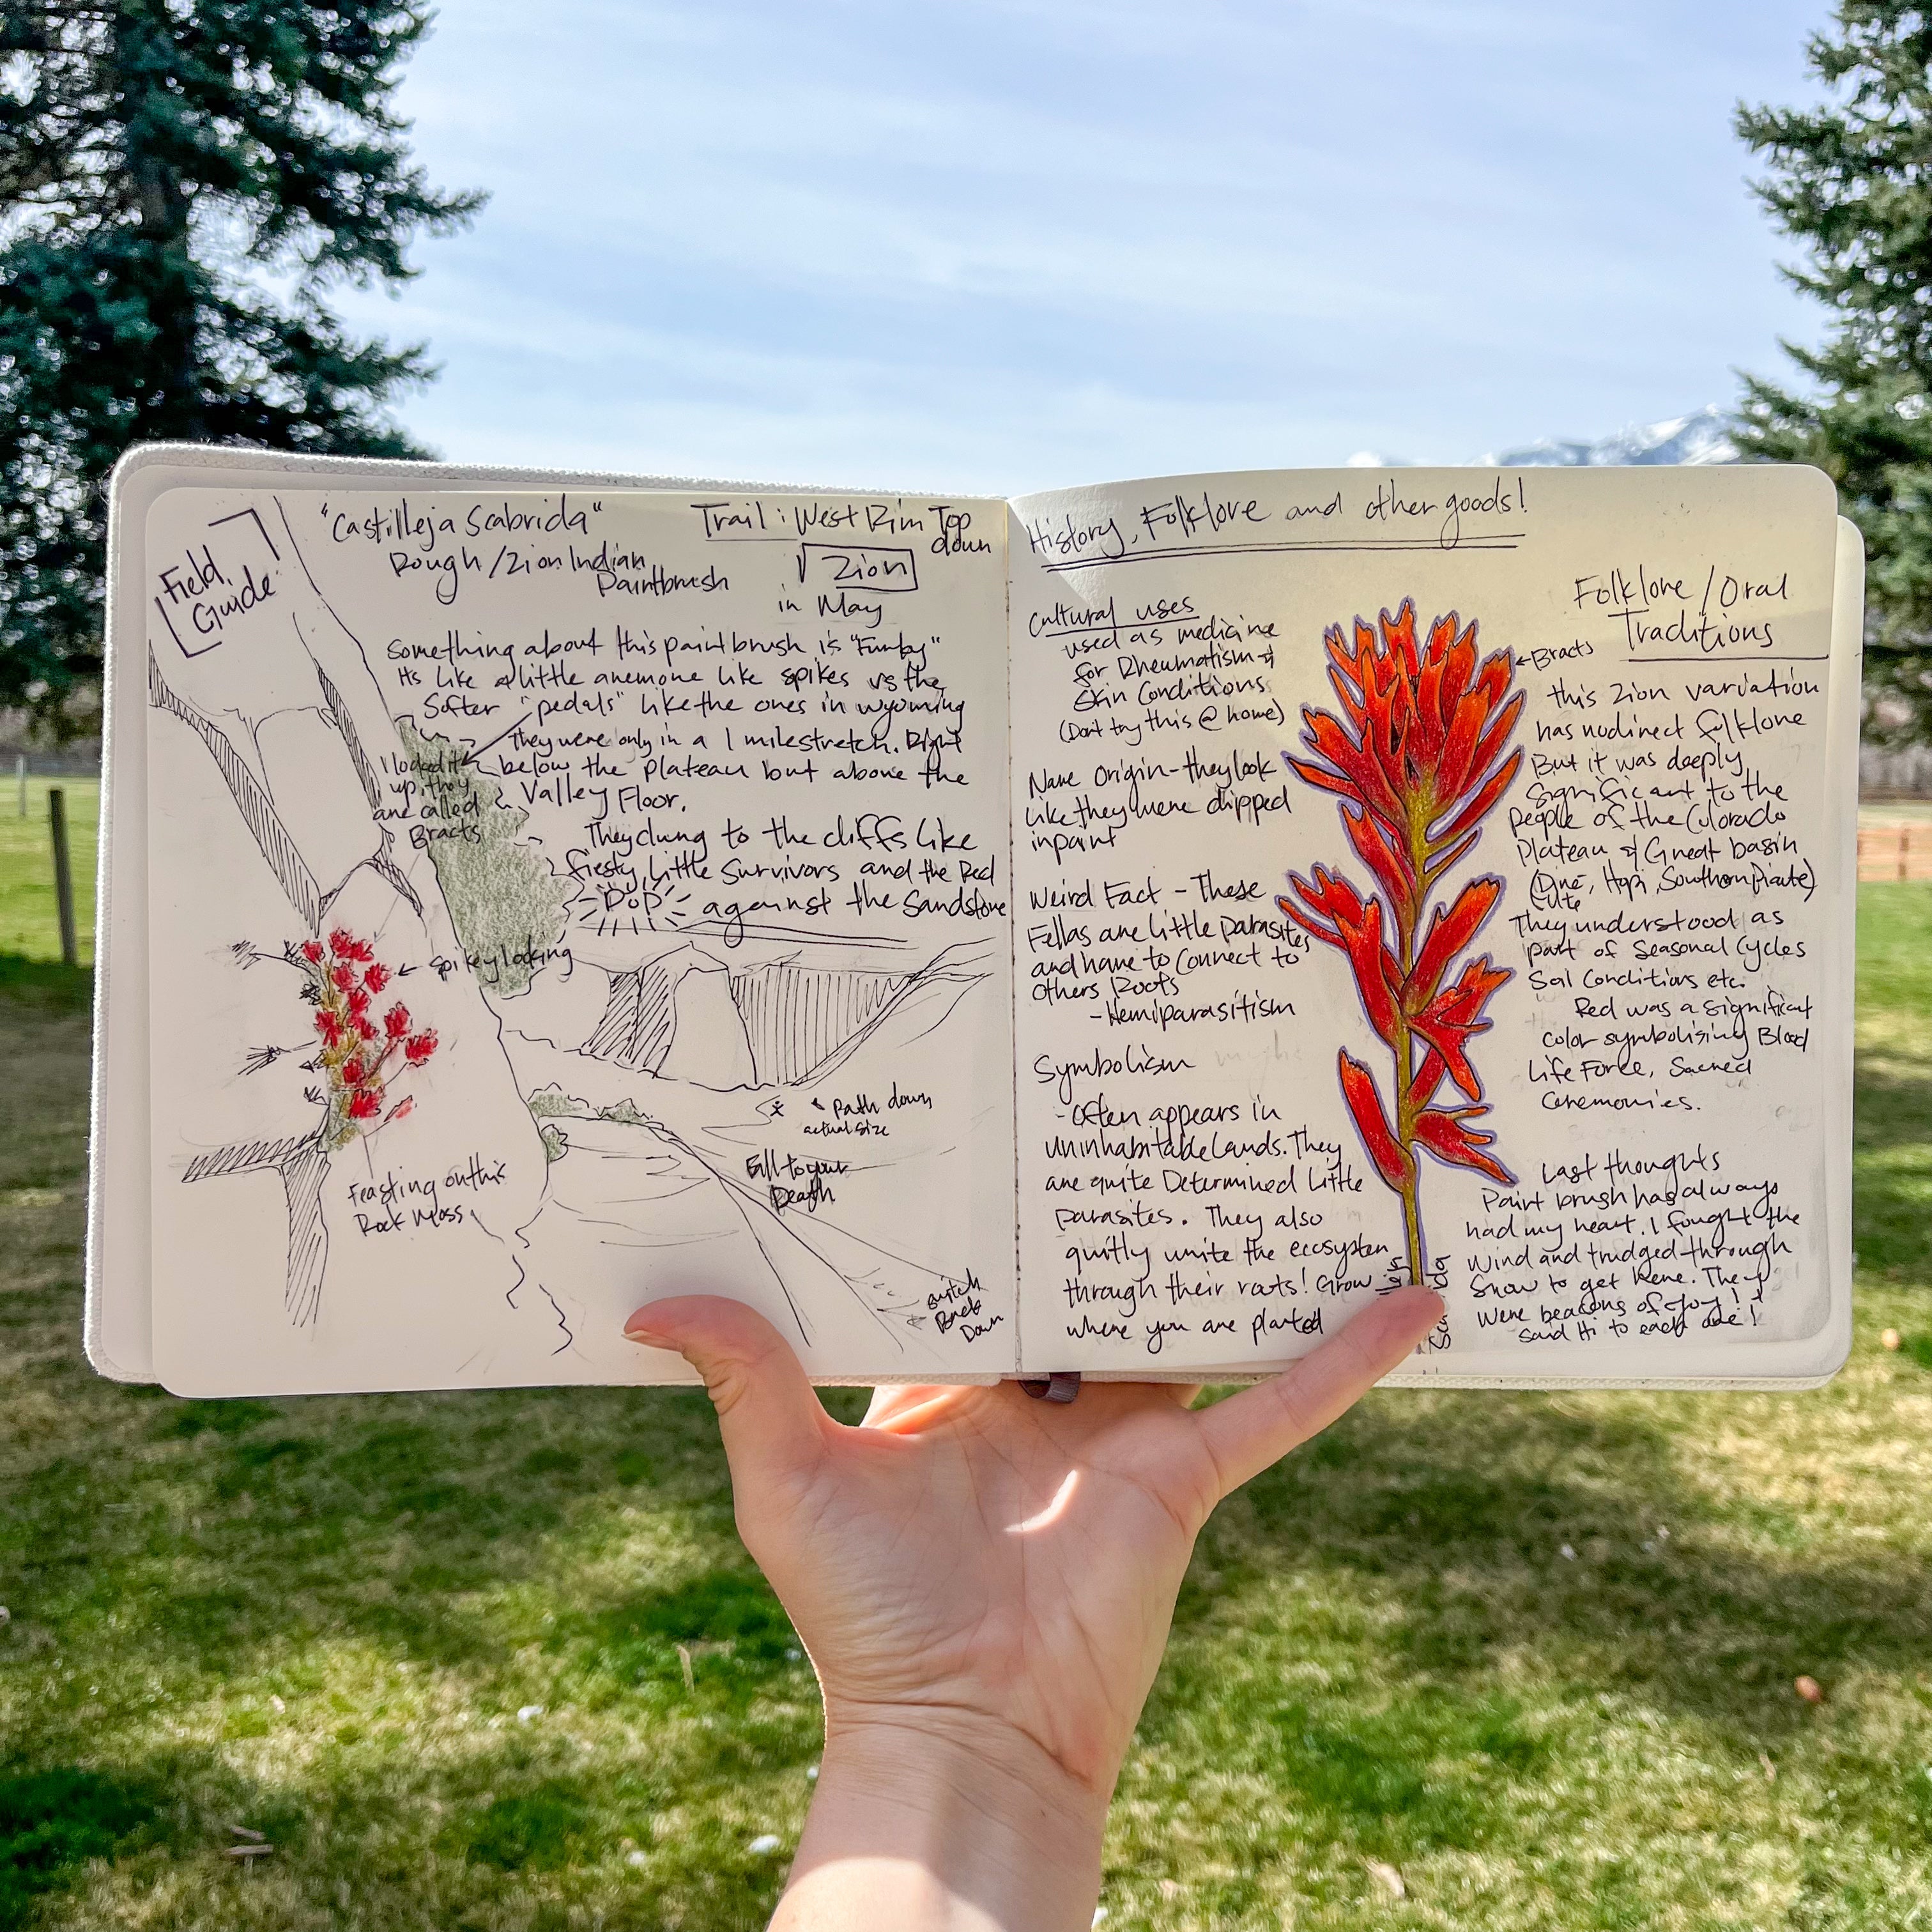 Field
Guide
"Castilleja Scabrida"
Rough/Zion Indian
Paintbrush
Trail: West Rim Top
down
Zion
in May
Something about this paintbrush is "Funky"
Its like a little anemone like spikes vs the
Softer "pedals" like the ones in wyoming
They were only in a 1 mile stretch. Right
below the plateau but above the
Valley Floor.
I looked it
up, they
are called
Bracts
They clung to the cliffs like
fiesty little survivors and the Red
POP against the Sandstone
spikey looking
Feasting on this
Rock Moss
Path down
actual size
Fall to your
Death
Switch
Back
Down
History, Folklore and other goods!
Cultural uses
used as medicine
for Rheumatism &
Skin Conditions
(Dont try this @ home)
Name Origin - they look
like they were dipped
in paint
Weird Fact - These
Fellas are little parasites
and have to connect to
others Roots
- Hemiparasitism
Symbolism
- Often appears in
uninhabitable lands. They
are quite Determined Little
parasites. They also
quitly unite the ecosystem
through their roots! Grow
where you are planted
Bracts
Folklore / Oral
Traditions
this Zion variation
has no direct folklore
But it was deeply
significant to the
people of the Colorado
Plateau & Great basin
(Diné, Hopi, Southern Piaute)
Ute
They understood as
part of Seasonal Cycles
Soil Conditions etc.
Red was a significant
color symbolising Blood
Life Force, Sacred
Ceremonies.
Last thoughts
Paint brush has always
had my heart. I fought the
Wind and trudged through
Snow to get here. They
were beacons of Joy! I
said Hi to each one!